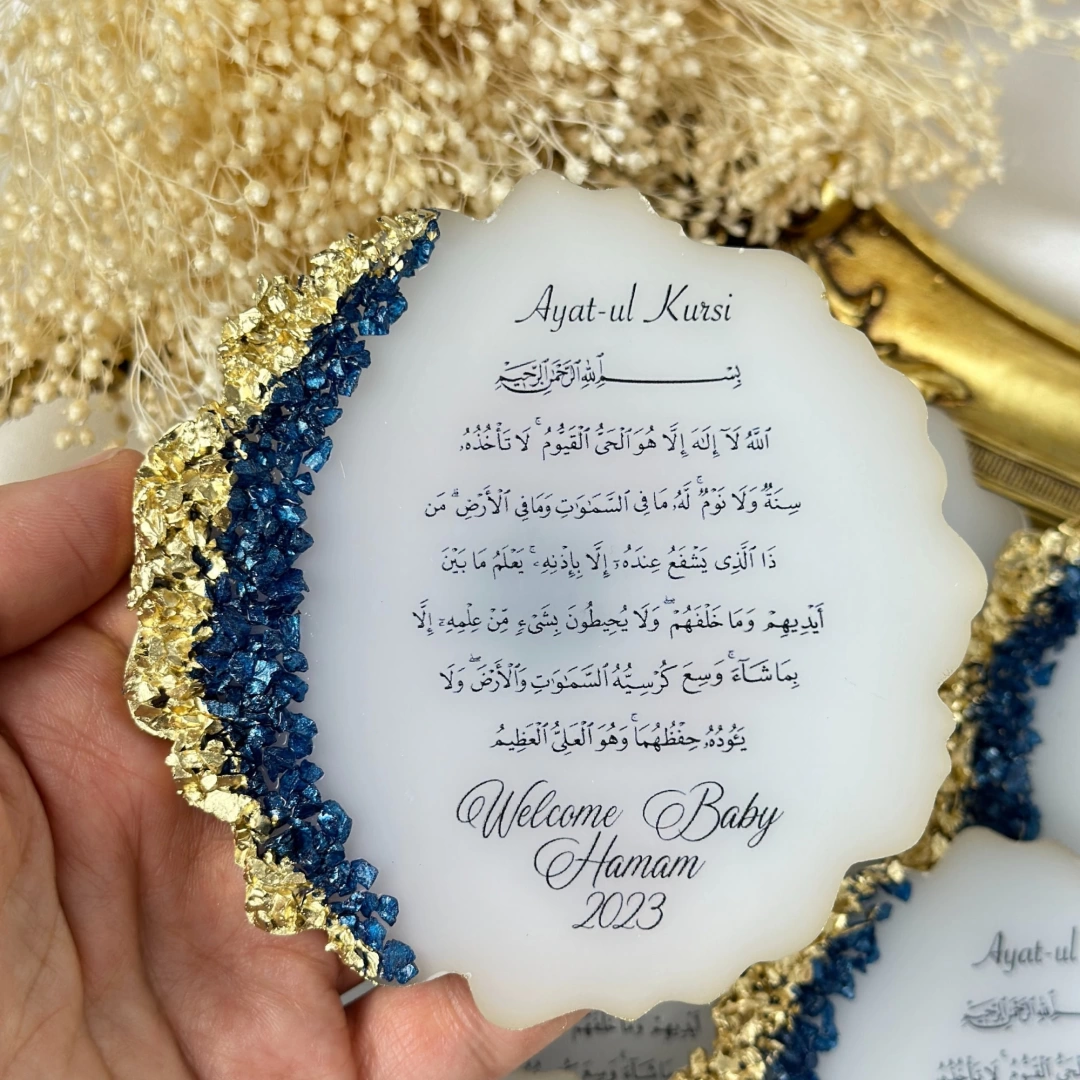 Ayat-ul Kursi
بِسْمِ ٱللَّهِ ٱلرَّحْمَٰنِ ٱلرَّحِيمِ
ٱللَّهُ لَآ إِلَٰهَ إِلَّا هُوَ ٱلْحَىُّ ٱلْقَيُّومُ ۚ لَا تَأْخُذُهُۥ
سِنَةٌ وَلَا نَوْمٌ ۚ لَّهُۥ مَا فِى ٱلسَّمَٰوَٰتِ وَمَا فِى ٱلْأَرْضِ ۗ مَن
ذَا ٱلَّذِى يَشْفَعُ عِندَهُۥٓ إِلَّا بِإِذْنِهِۦ ۚ يَعْلَمُ مَا بَيْنَ
أَيْدِيهِمْ وَمَا خَلْفَهُمْ ۖ وَلَا يُحِيطُونَ بِشَىْءٍ مِّنْ عِلْمِهِۦٓ إِلَّا
بِمَا شَآءَ ۚ وَسِعَ كُرْسِيُّهُ ٱلسَّمَٰوَٰتِ وَٱلْأَرْضَ ۖ وَلَا
يَـُٔودُهُۥ حِفْظُهُمَا ۚ وَهُوَ ٱلْعَلِىُّ ٱلْعَظِيمُ
Welcome Baby
Hamam
2023
Ayat-ul